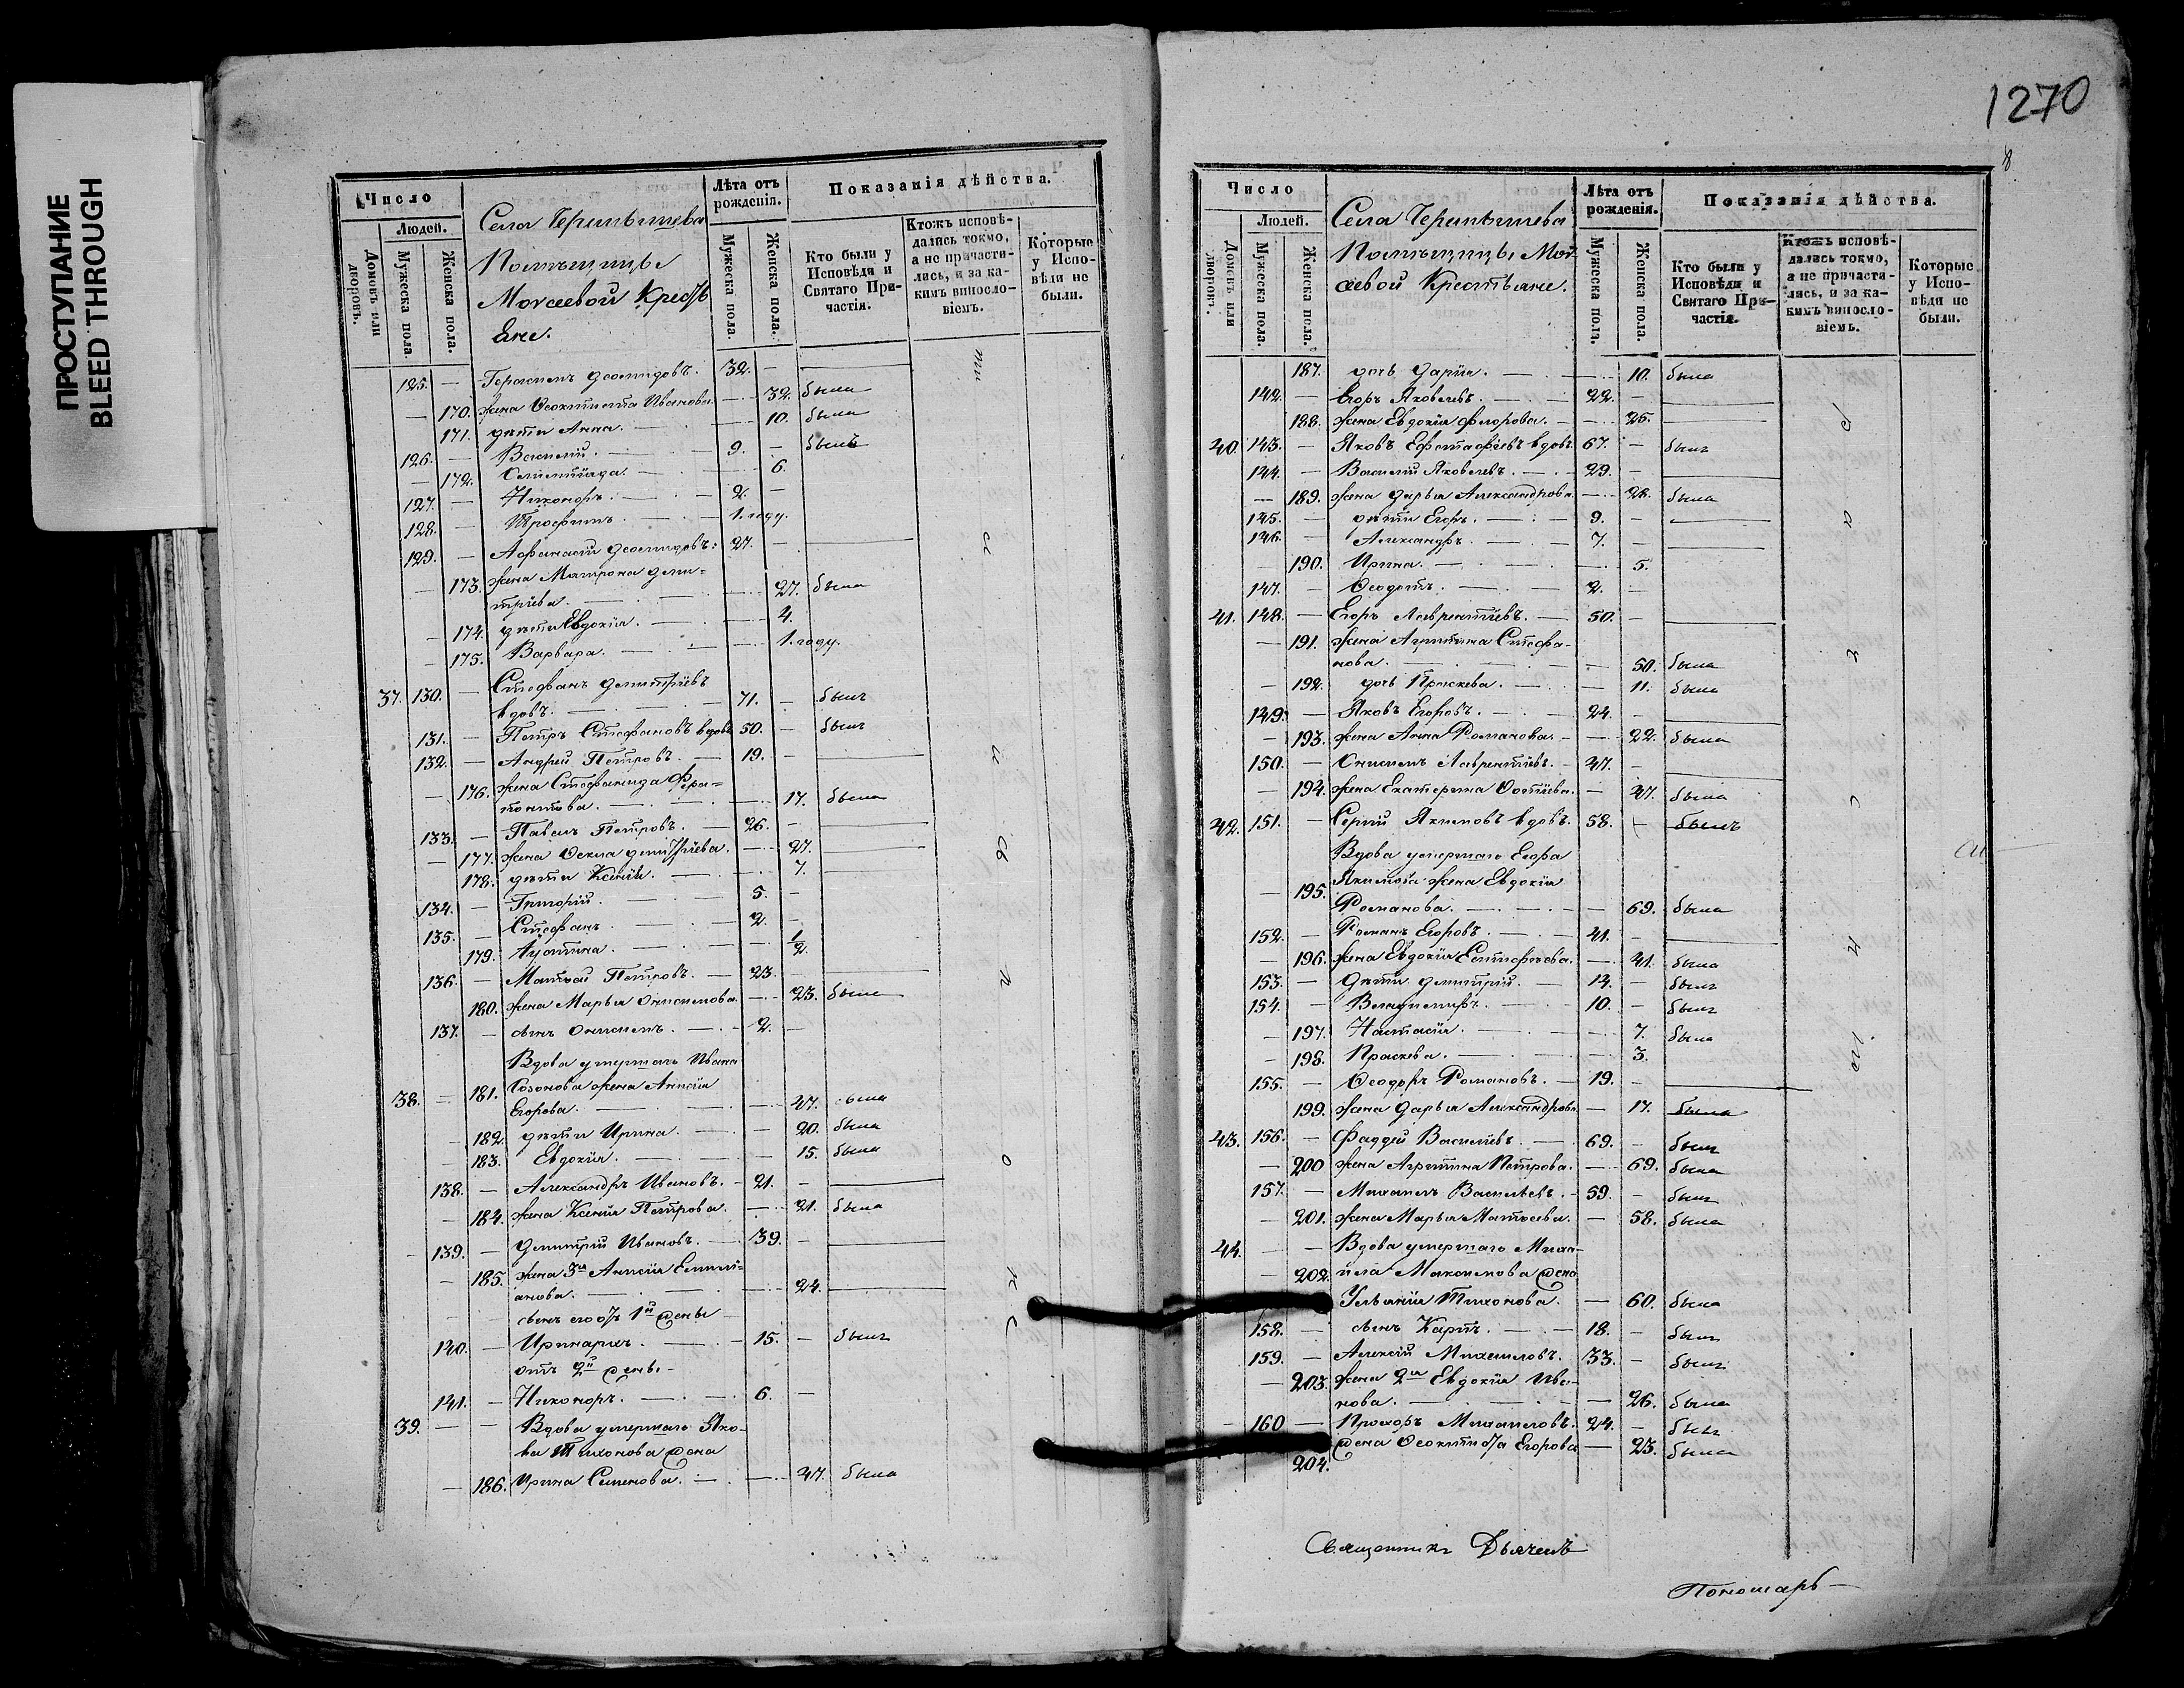 ПРОСТУПАНИЕ
BLEED THROUGH
Число
Людей.
Домовъ или дворовъ.
Мужеска пола.
Женска пола.
Села
Помѣщицы
Крестьяне.
Лѣта отъ рожденія.
Мужеска пола.
Женска пола.
Показанія дѣйства.
Кто были у Исповѣди и Святаго Причастія.
Ктожъ исповѣдались токмо, а не причастились, и за какимъ винословіемъ.
Которые у Исповѣди не были.
125. — Герасимъ Діомидовъ. 32. —
— 170. жена Ѳеоктиста Иванова. — 32. была
171. дѣти Анна. — 10. была
126. — Василій. 9. — былъ
— 172. — 6.
127. — Никоноръ. 2. —
128. — Трофимъ. 1. году.
129. — Афанасій Діомидовъ. 27. —
— 173. жена Матрона Дими=
тріева. — 27. была
— 174. дѣти Евдокія. 4.
— 175. Варвара. — 1. году.
37. 130. — Стефанъ Димитріевъ
вдовъ. 71. — былъ
131. — Петръ Стефановъ вдовъ 50. — былъ
132. — Андрей Петровъ. 19. —
— 176. жена Стефанида
17. была
133. — Павелъ Петровъ. 26. —
— 177. жена Ѳекла Димитріева. — 27.
178. дѣти Ксенія. 7.
134. — Григорій. 5. —
135. — Стефанъ. 2. —
179. Іустина. — 1/2.
136. — Матвей Петровъ. 23. —
180. жена Марья Онисимова. — 23. была
137. — сынъ Онисимъ. 2. —
Вдова умершаго Ивана
38. — 181. Созонова жена Анисія
Егорова. — 47. была
182. дѣти Ирина. — 20. была
183. Евдокія. — 15. была
138. — Александръ Ивановъ. 21. —
— 184. жена Ксенія Петрова. — 21. была
139. — Димитрій Ивановъ. 39. —
— 185. жена 3я Анисія Емили=
анова. — 24.
сынъ его отъ 1й жены
140. — Иринархъ. 15. — былъ
отъ 2й жены
141. — Никоноръ. 6. —
39. — — Вдова умершаго Яко-
ва Тихонова жена
— 186. Ирина Семенова. — 47. была
1270
8
Число
Людей.
Домовъ или дворовъ.
Мужеска пола.
Женска пола.
Села
Помѣщицы
Крестьяне.
Лѣта отъ рожденія.
Мужеска пола.
Женска пола.
Показанія дѣйства.
Кто были у Исповѣди и Святаго Причастія.
Ктожъ исповѣдались токмо, а не причастились, и за какимъ винословіемъ.
Которые у Исповѣди не были.
187. дочь Дарія. — 10. была
142. — Егоръ Яковлевъ. 22. —
188. жена Евдокія Флорова. — 25.
40. 143. — Яковъ Ефстафіевъ вдовъ. 67. — былъ
144. — Василій Яковлевъ. 29. —
— 189. жена Дарья Александрова. — 28. была
145. — дѣти Егоръ. 9. —
146. — Александръ. 7. —
190. Ирина. — 5.
147. — Ѳеодотъ. 2. —
41. 148. — Егоръ Лаврентіевъ. 50. —
— 191. жена Агрипина Стефа-
нова. — 50. была
— 192. дочь Праскева. — 11. была
149. — Яковъ Егоровъ. 24. —
— 193. жена Анна Романова. — 22. была
150. — Онисимъ Лаврентіевъ. 47. —
— 194. жена Екатерина — 47. была
42. 151. — Сергій Якимовъ вдовъ. 58. — былъ
Вдова умершаго Егора
— 195. Якимова жена Евдокія
Романова. — 69. была
152. — Романъ Егоровъ. 41. —
— 196. жена Евдокія — 41. была
153. — Дѣти Димитрій. 14. — былъ
154. — Владимиръ. 10. — былъ
— 197. Настасія. — 7. была
— 198. Праскева. — 3.
155. — Ѳеодоръ Романовъ. 19. —
199. жена Дарья Александрова — 17. была
43. 156. — Фаддей Василіевъ. 69. — былъ
— 200 жена Агрипина Петрова. — 69. была
157. — Михаилъ Василіевъ. 59. — былъ
— 201. жена Марья Матвеева. — 58. была
44. — — Вдова умершаго Миха-
— 202. ила Максимова жена
Ульянія Тихонова. — 60. была
158. — сынъ Карпъ. 18. — былъ
159. — Алексій Михаиловъ. 33. — былъ
— 203. жена 2я Евдокія Ива-
нова. — 26. была
— 160 — Прохоръ Михаиловъ. 24. — былъ
204. жена Ѳеоктиста Егорова — 23. была
Священникъ
Пономарь